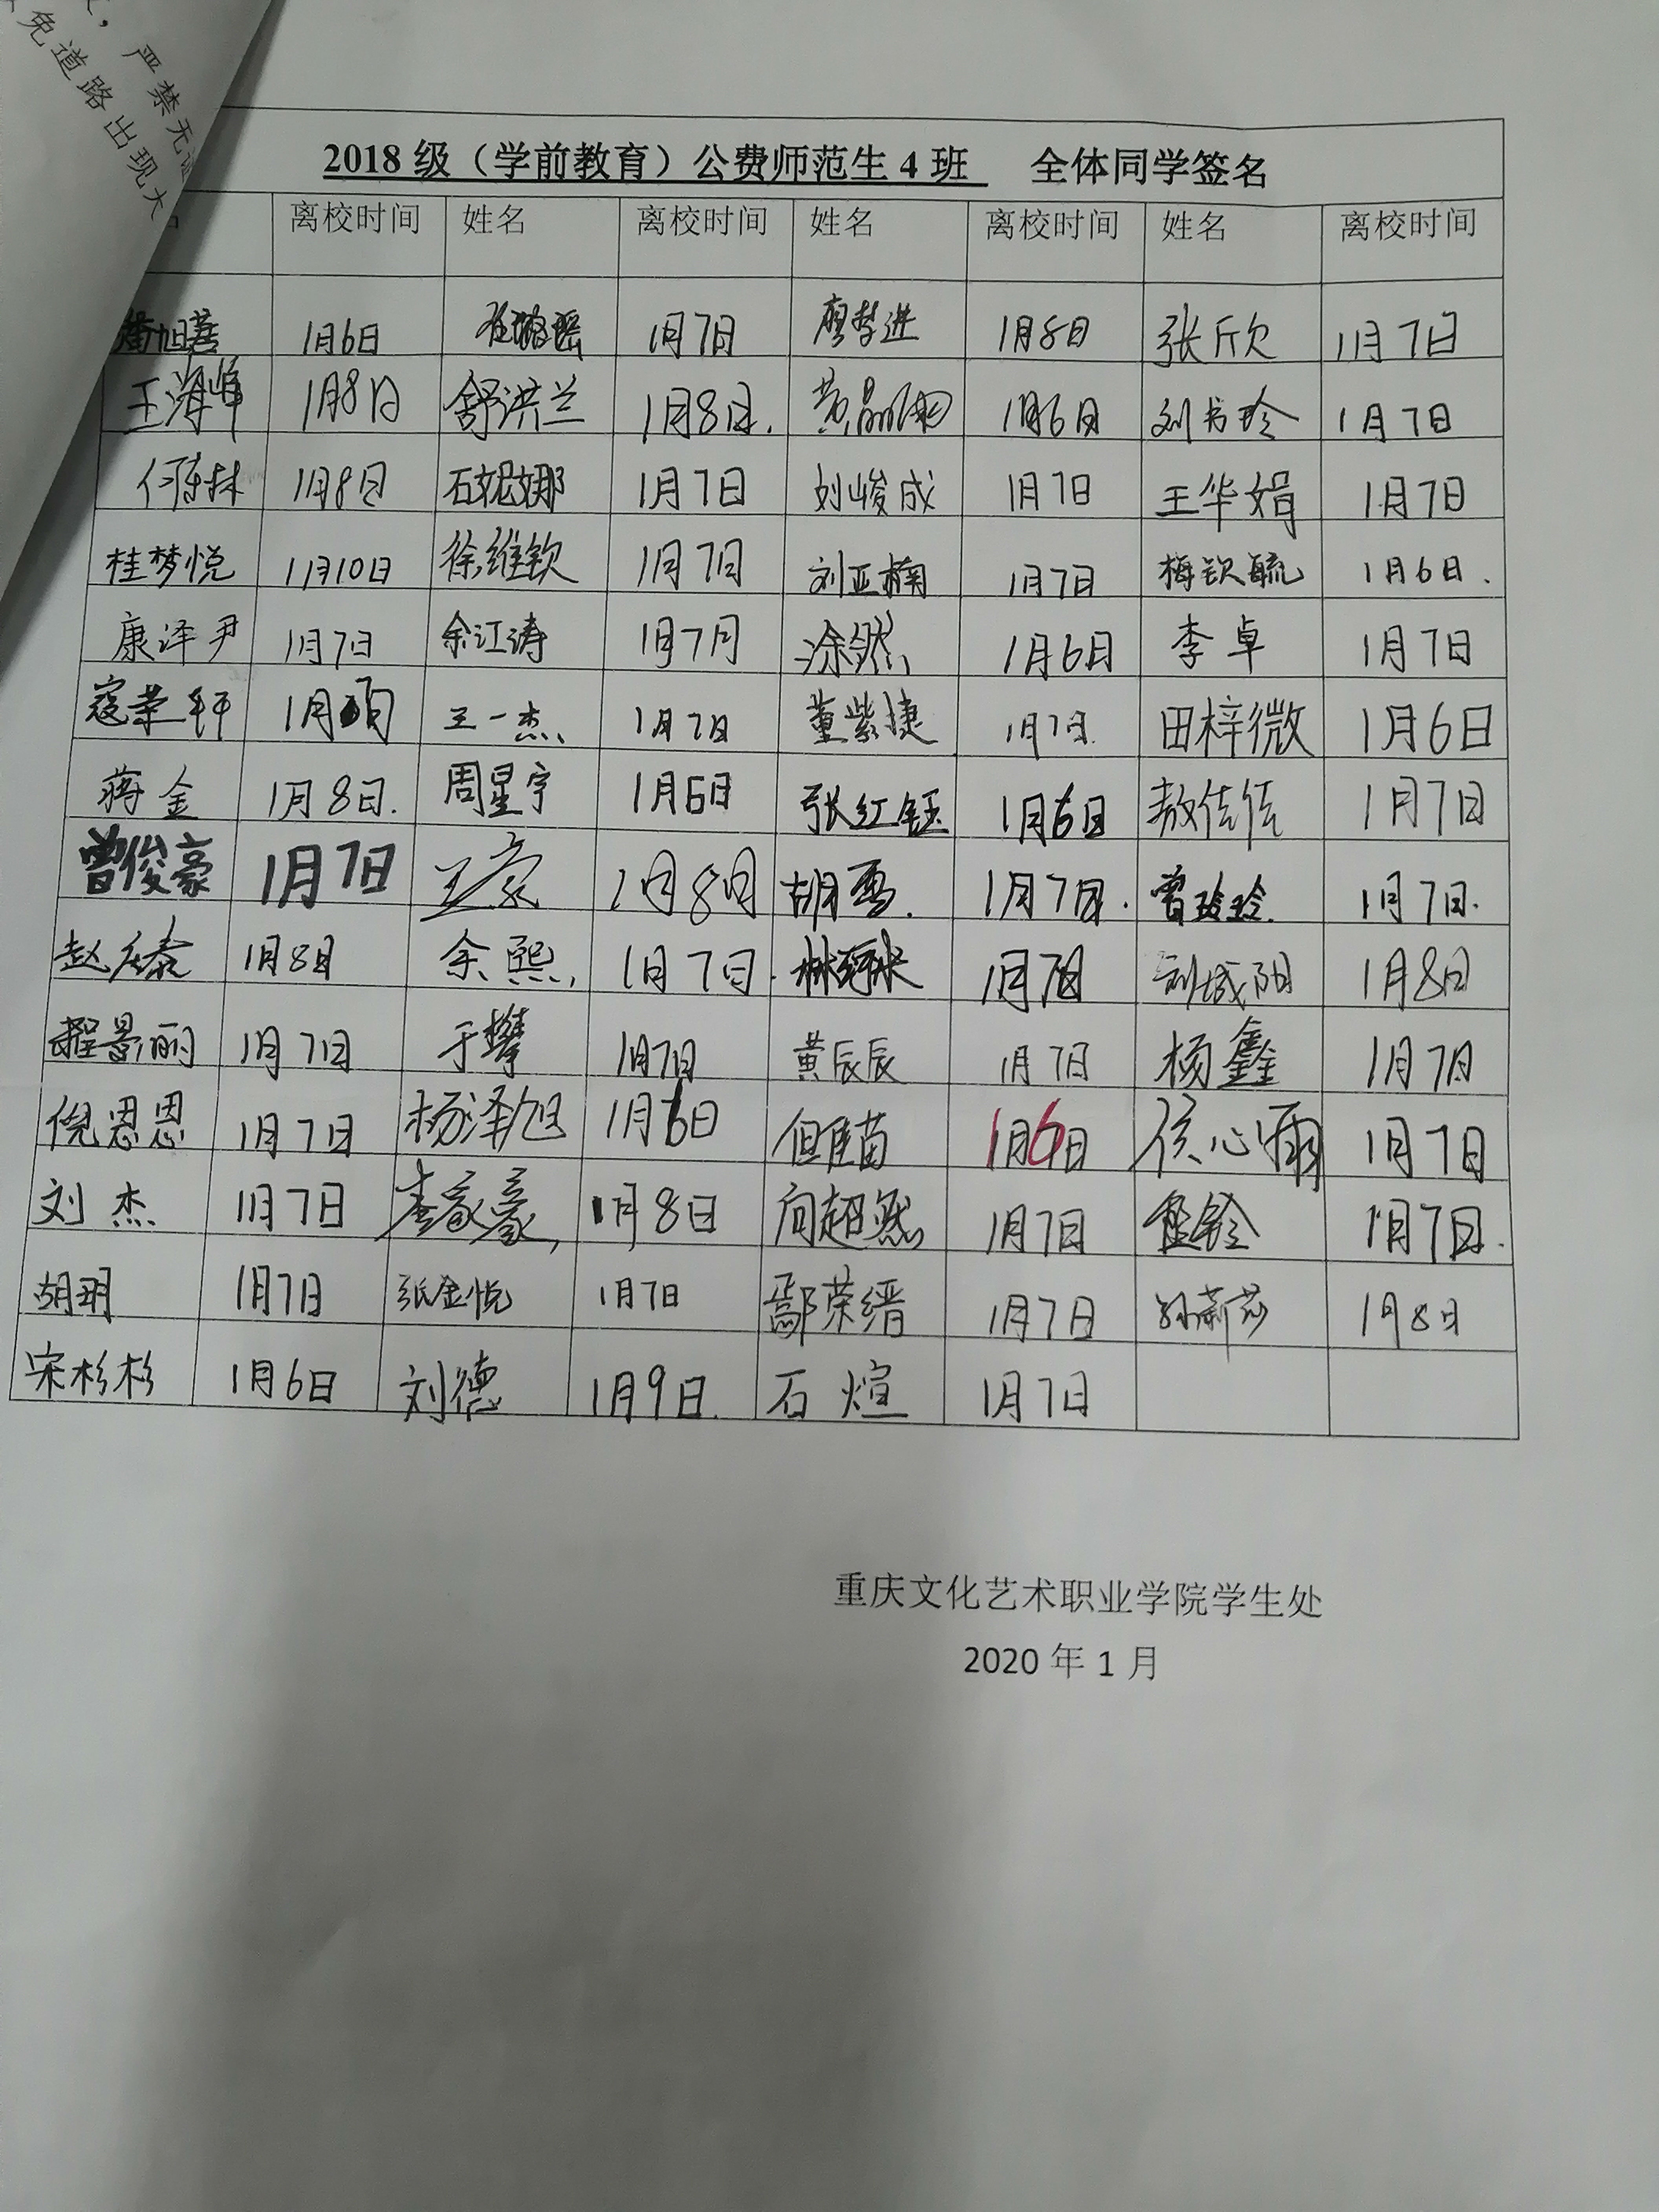 严禁无
免道路出现大
2018级（学前教育）公费师范生4班 全体同学签名
离校时间 姓名 离校时间 姓名 离校时间 姓名 离校时间
1月6日 1月7日 廖梦进 1月8日 张欣 1月7日
王海峰 1月8日 舒洪兰 1月8日. 黄 1月6日 刘书玲 1月7日
何陈林 1月8日 石妮娜 1月7日 刘峻成 1月7日 王华娟 1月7日
桂梦悦 1月10日 徐维钦 1月7日 刘亚楠 1月7日 梅钦毓 1月6日.
康泽尹 1月7日 余江涛 1月7月 涂然 1月6日 李卓 1月7日
寇荣轩 1月 王一杰 1月7日 董紫捷 1月7日 田梓微 1月6日
蒋金 1月8日. 周星宇 1月6日 张红钰 1月6日 敖佳佳 1月7日
曾俊豪 1月7日 王京 1月8日 胡雪. 1月7日. 曾玲玲. 1月7日.
赵庆泰 1月8日 余熙 1月7日. 1月7日 刘城阳 1月8日
程景丽 1月7日 于攀 1月7日 黄辰辰 1月7日 杨鑫 1月7日
倪恩恩 1月7日 杨泽旭 1月6日 但佳苗 1月6日 侯心雨 1月7日
刘杰 1月7日 李家豪 1月8日 向超然 1月7日 1月7日.
胡玥 1月7日 张金悦 1月7日 鄢荣缙 1月7日 孙莉莎 1月8日
宋杉杉 1月6日 刘德 1月9日. 石煊 1月7日
重庆文化艺术职业学院学生处
2020年1月